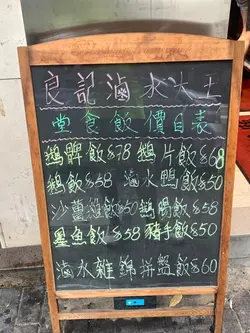 良記滷水大王
堂食飯價目表
鵝髀飯$78 鵝片飯$68
鵝飯$58 滷水鴨飯$50
沙薑雞飯$50 鵝腸飯$58
墨魚飯$58 豬手飯$50
滷水雜錦拼盤飯$60